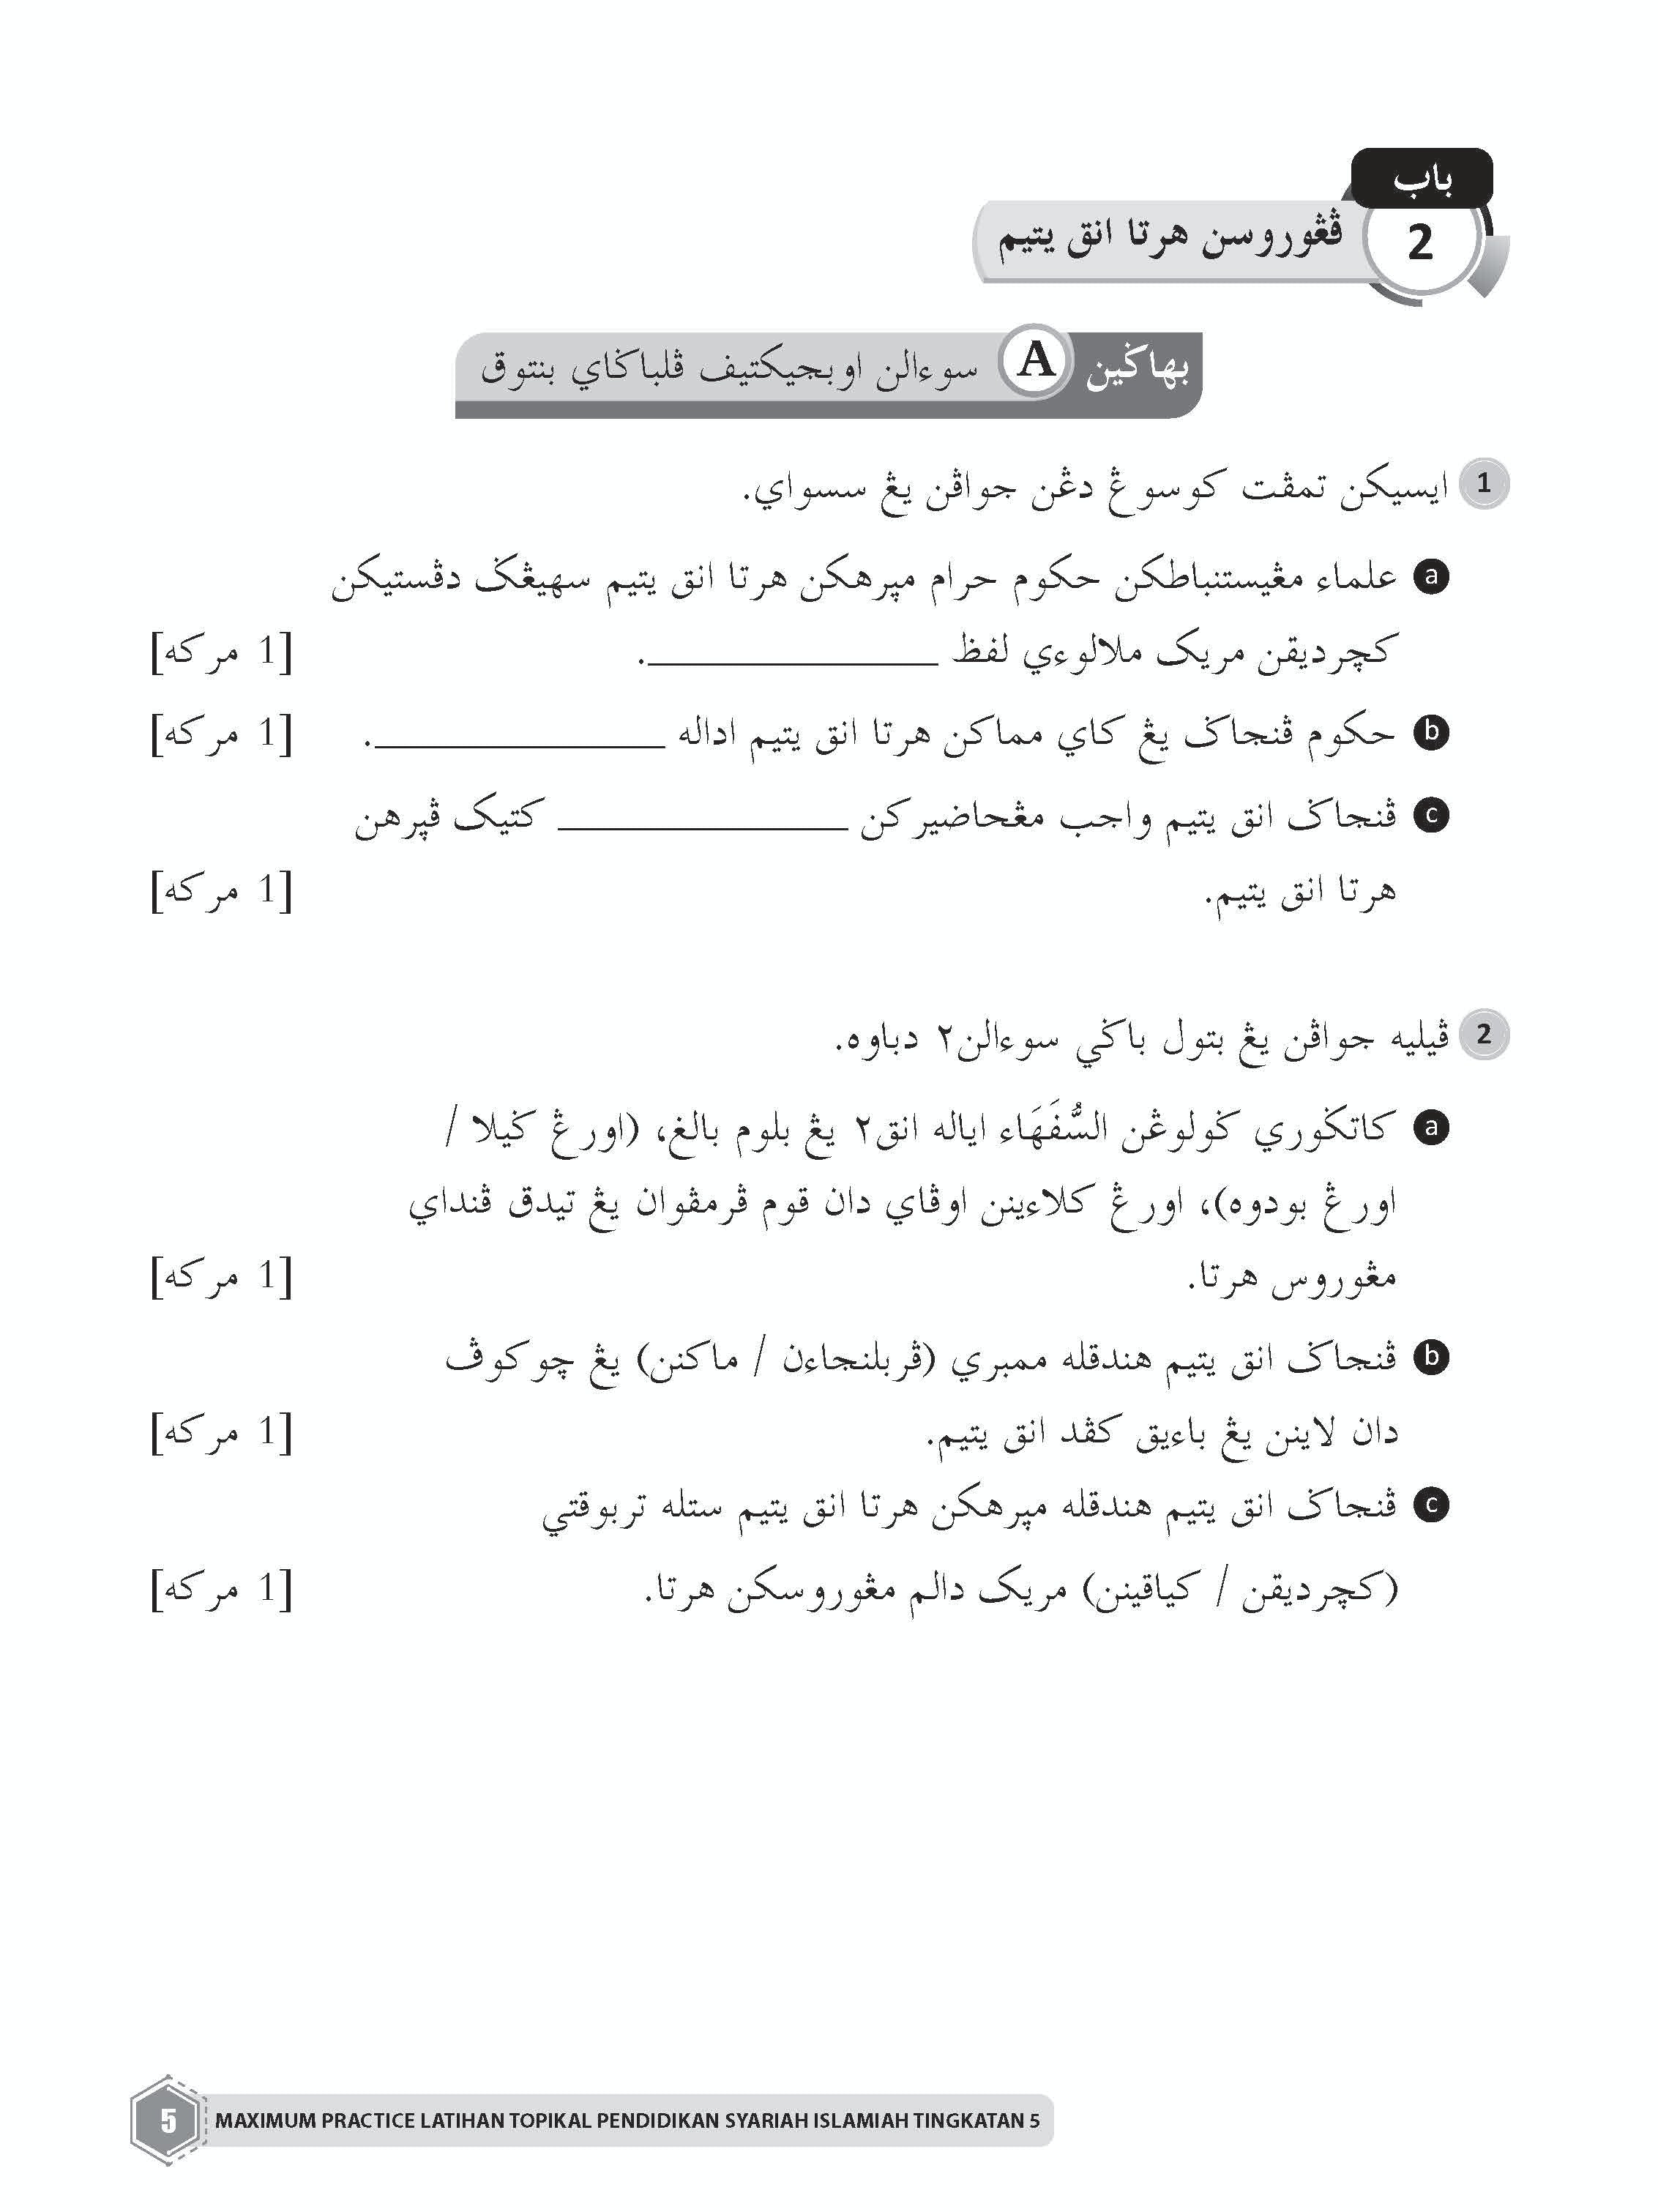 باب
2
ڤڠوروسن هرتا انق يتيم
بهاݢين A سوءالن اوبجيکتيف ڤلباݢاي بنتوق
1 ايسيکن تمڤت کوسوڠ دڠن جواڤن يڠ سسواي.
a علماء مڠيستنباطکن حکوم حرام مڽرهکن هرتا انق يتيم سهيڠݢ دڤستيکن
کچرديقن مريک ملالوءي لفظ ____________. [1 مرکه]
b حکوم ڤنجاݢ يڠ کاي مماکن هرتا انق يتيم اداله ____________. [1 مرکه]
c ڤنجاݢ انق يتيم واجب مڠحاضيرکن ____________ کتيک ڤڽرهن
هرتا انق يتيم. [1 مرکه]
2 ڤيليه جواڤن يڠ بتول باݢي سوءالن٢ دباوه.
a کاتݢوري ݢولوڠن السُّفَهَاء اياله انق٢ يڠ بلوم بالغ، (اورڠ ݢيلا /
اورڠ بودوه)، اورڠ کلاءينن اوڤاي دان قوم ڤرمڤوان يڠ تيدق ڤنداي
مڠوروس هرتا. [1 مرکه]
b ڤنجاݢ انق يتيم هندقله ممبري (ڤربلنجاءن / ماکنن) يڠ چوکوڤ
دان لاينن يڠ باءيق کڤد انق يتيم. [1 مرکه]
c ڤنجاݢ انق يتيم هندقله مڽرهکن هرتا انق يتيم ستله تربوقتي
(کچرديقن / کياقينن) مريک دالم مڠوروسکن هرتا. [1 مرکه]
5 MAXIMUM PRACTICE LATIHAN TOPIKAL PENDIDIKAN SYARIAH ISLAMIAH TINGKATAN 5